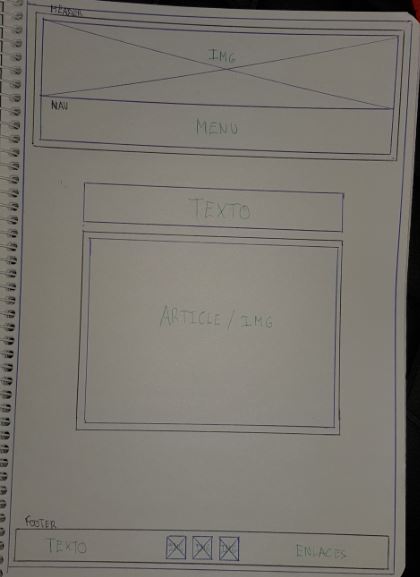 HEADER
IMG
NAV
MENU
TEXTO
ARTICLE / IMG
FOOTER
TEXTO
ENLACES